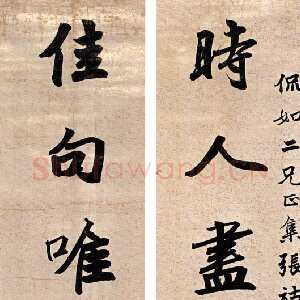 侃如二兄正集張祜
時人盡
佳句唯